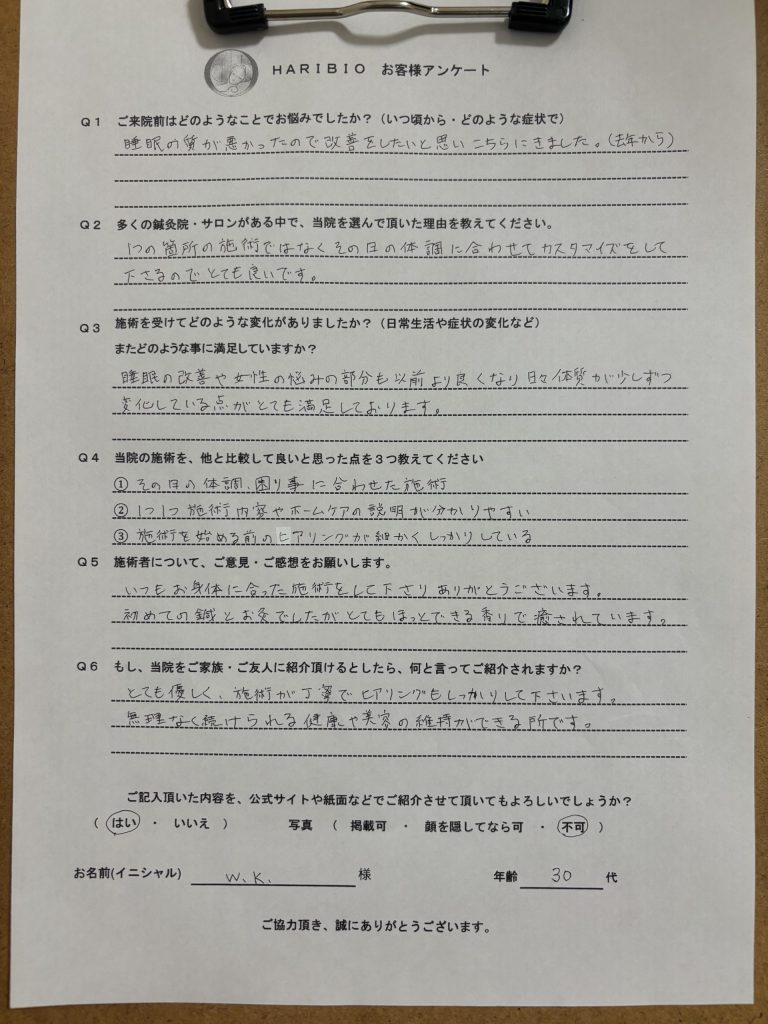 HARIBIO お客様アンケート
Q1 ご来院前はどのようなことでお悩みでしたか？（いつ頃から・どのような症状で）
睡眠の質が悪かったので改善をしたいと思いこちらにきました。（去年から）
Q2 多くの鍼灸院・サロンがある中で、当院を選んで頂いた理由を教えてください。
1つの箇所の施術ではなくその日の体調に合わせてカスタマイズをして
下さるのでとても良いです。
Q3 施術を受けてどのような変化がありましたか？（日常生活や症状の変化など）
またどのような事に満足していますか？
睡眠の改善や女性の悩みの部分も以前より良くなり日々体質が少しずつ
変化している点がとても満足しております。
Q4 当院の施術を、他と比較して良いと思った点を３つ教えてください
① その日の体調、困り事に合わせた施術
② 1つ1つ施術内容やホームケアの説明が分かりやすい
③ 施術を始める前のヒアリングが細かくしっかりしている
Q5 施術者について、ご意見・ご感想をお願いします。
いつもお身体に合った施術をして下さりありがとうございます。
初めての鍼とお灸でしたがとてもほっとできる香りで癒されています。
Q6 もし、当院をご家族・ご友人に紹介頂けるとしたら、何と言ってご紹介されますか？
とても優しく、施術が丁寧でヒアリングもしっかりして下さいます。
無理なく続けられる健康や美容の維持ができる所です。
ご記入頂いた内容を、公式サイトや紙面などでご紹介させて頂いてもよろしいでしょうか？
（ はい ・ いいえ ） 写真 （ 掲載可 ・ 顔を隠してなら可 ・ 不可 ）
お名前(イニシャル) W.K. 様 年齢 30 代
ご協力頂き、誠にありがとうございます。